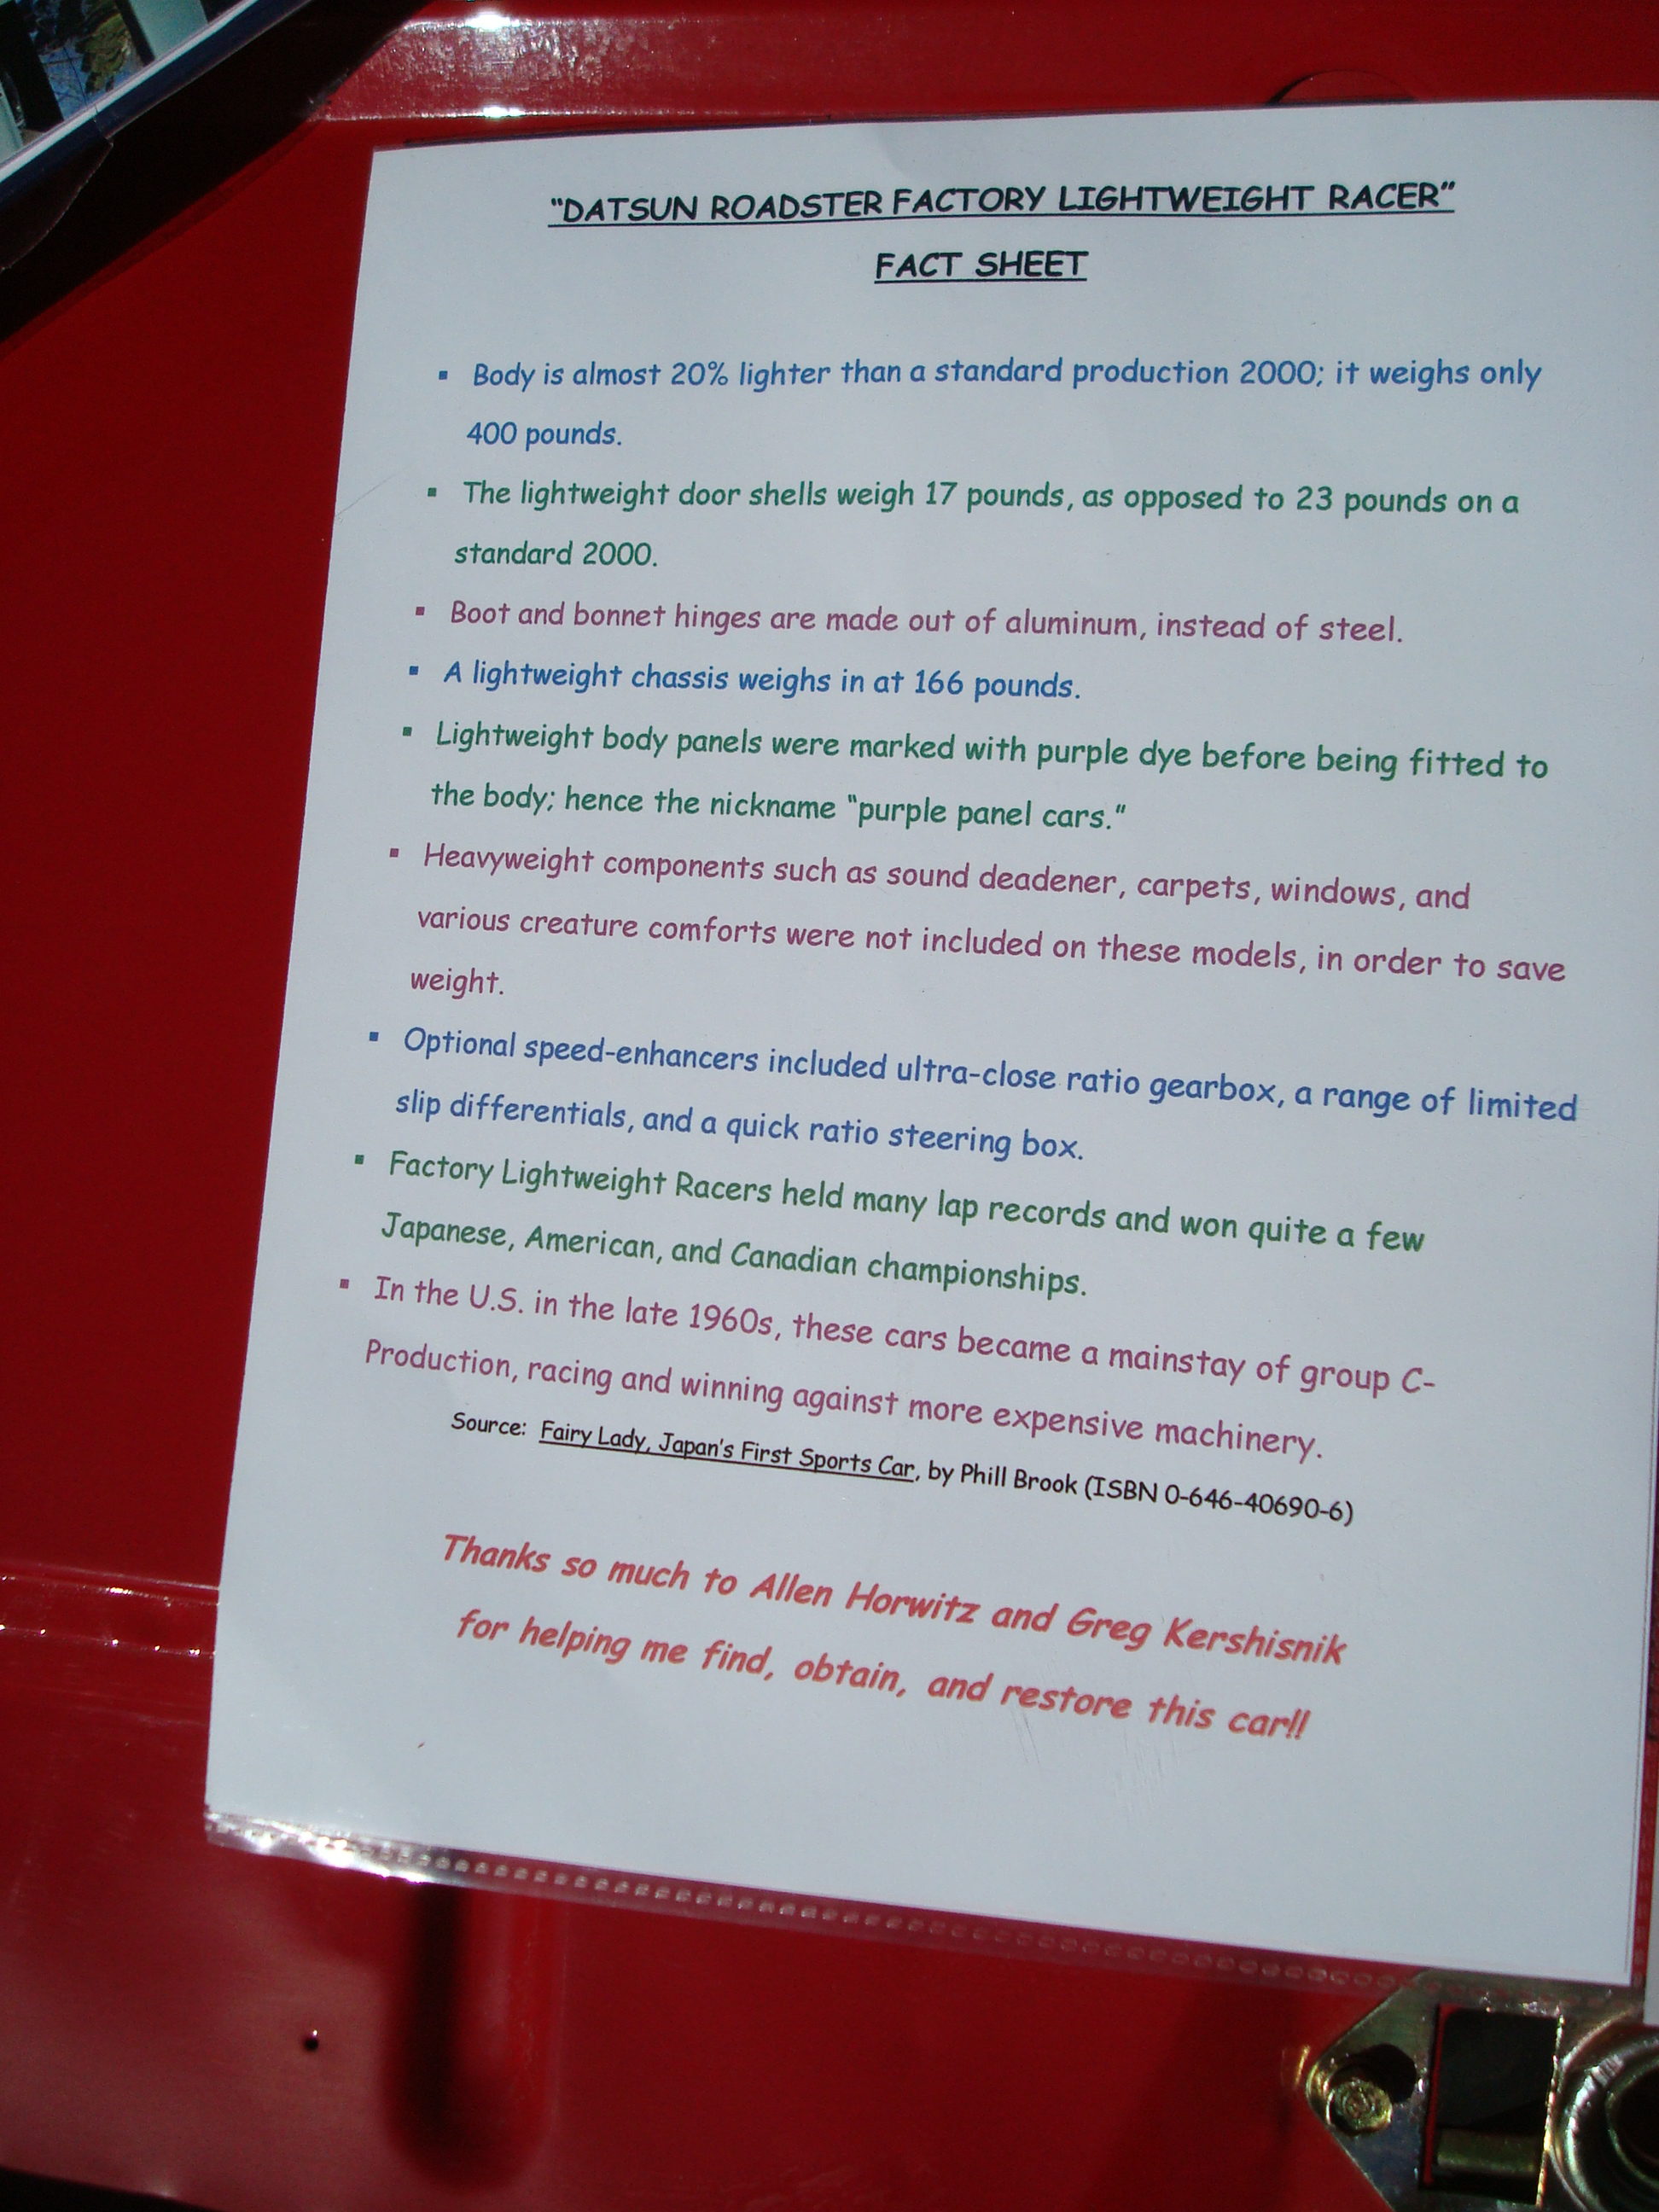 “DATSUN ROADSTER FACTORY LIGHTWEIGHT RACER”
FACT SHEET
▪ Body is almost 20% lighter than a standard production 2000; it weighs only
400 pounds.
▪ The lightweight door shells weigh 17 pounds, as opposed to 23 pounds on a
standard 2000.
▪ Boot and bonnet hinges are made out of aluminum, instead of steel.
▪ A lightweight chassis weighs in at 166 pounds.
▪ Lightweight body panels were marked with purple dye before being fitted to
the body; hence the nickname “purple panel cars.”
▪ Heavyweight components such as sound deadener, carpets, windows, and
various creature comforts were not included on these models, in order to save
weight.
▪ Optional speed-enhancers included ultra-close ratio gearbox, a range of limited
slip differentials, and a quick ratio steering box.
▪ Factory Lightweight Racers held many lap records and won quite a few
Japanese, American, and Canadian championships.
▪ In the U.S. in the late 1960s, these cars became a mainstay of group C-
Production, racing and winning against more expensive machinery.
Source: Fairy Lady, Japan's First Sports Car, by Phill Brook (ISBN 0-646-40690-6)
Thanks so much to Allen Horwitz and Greg Kershisnik
for helping me find, obtain, and restore this car!!